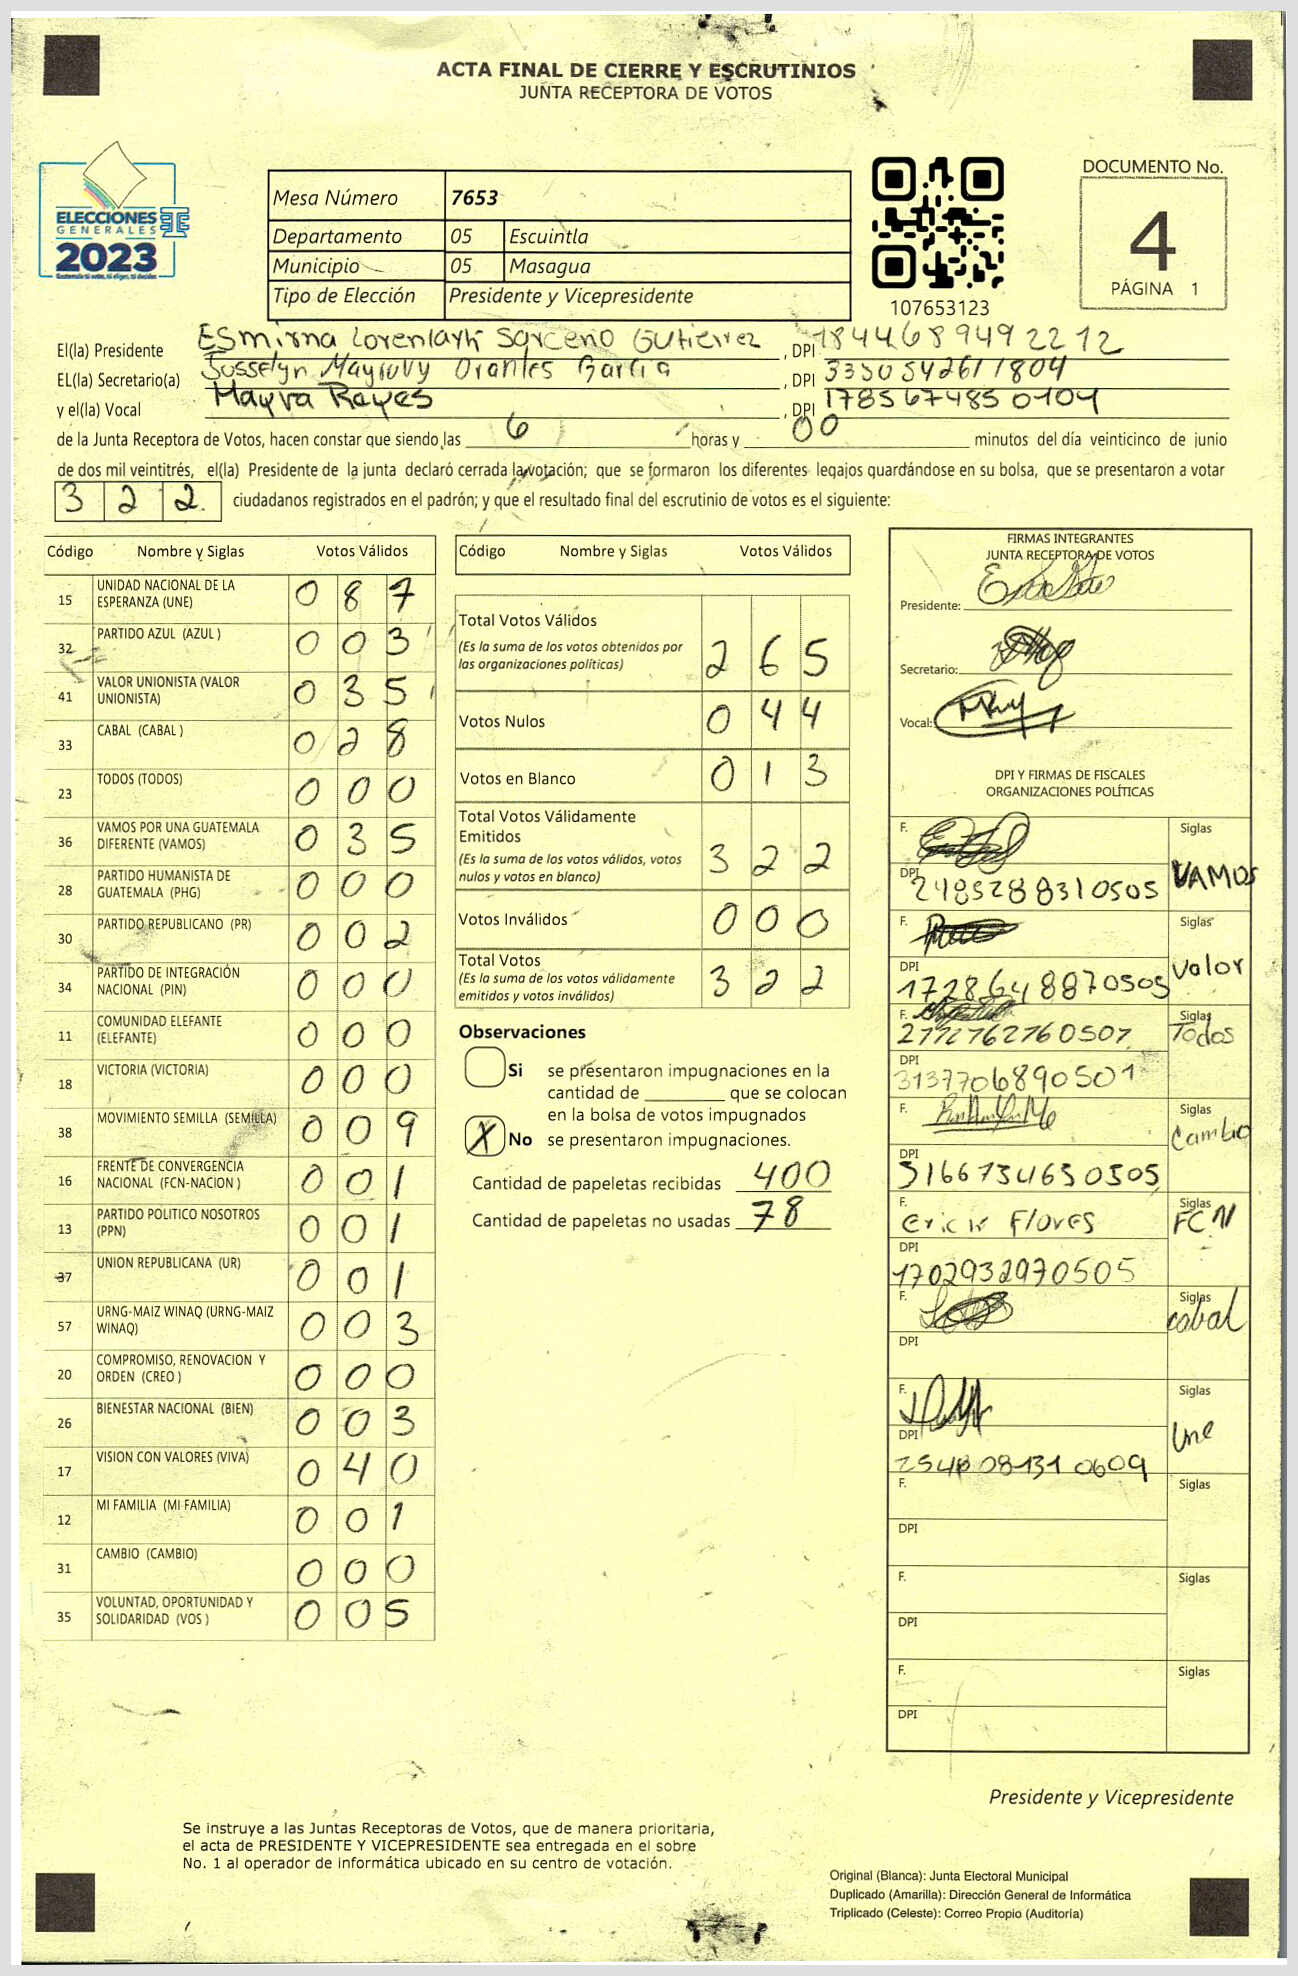 ACTA FINAL DE CIERRE Y ESCRUTINIOS
JUNTA RECEPTORA DE VOTOS
ELECCIONES
GENERALES
2023
Guatemala tú votas, tú eliges, tú decides
Mesa Número 7653
Departamento 05 Escuintla
Municipio 05 Masagua
Tipo de Elección Presidente y Vicepresidente
107653123
DOCUMENTO No.
4
PÁGINA 1
El(la) Presidente Esmirna Sarceno Gutierrez , DPI 1844689492212
EL(la) Secretario(a) Josselyn Orantes Garcia , DPI 3330542611804
y el(la) Vocal Mayra Reyes , DPI 1785674850104
de la Junta Receptora de Votos, hacen constar que siendo las 6 horas y 00 minutos del día veinticinco de junio
de dos mil veintitrés, el(la) Presidente de la junta declaró cerrada la votación; que se formaron los diferentes legajos guardándose en su bolsa, que se presentaron a votar
322 ciudadanos registrados en el padrón; y que el resultado final del escrutinio de votos es el siguiente:
Código Nombre y Siglas Votos Válidos
15 UNIDAD NACIONAL DE LA ESPERANZA (UNE) 087
32 PARTIDO AZUL (AZUL ) 003
41 VALOR UNIONISTA (VALOR UNIONISTA) 035
33 CABAL (CABAL ) 028
23 TODOS (TODOS) 000
36 VAMOS POR UNA GUATEMALA DIFERENTE (VAMOS) 035
28 PARTIDO HUMANISTA DE GUATEMALA (PHG) 000
30 PARTIDO REPUBLICANO (PR) 002
34 PARTIDO DE INTEGRACIÓN NACIONAL (PIN) 000
11 COMUNIDAD ELEFANTE (ELEFANTE) 000
18 VICTORIA (VICTORIA) 000
38 MOVIMIENTO SEMILLA (SEMILLA) 009
16 FRENTE DE CONVERGENCIA NACIONAL (FCN-NACION ) 001
13 PARTIDO POLITICO NOSOTROS (PPN) 001
37 UNION REPUBLICANA (UR) 001
57 URNG-MAIZ WINAQ (URNG-MAIZ WINAQ) 003
20 COMPROMISO, RENOVACION Y ORDEN (CREO ) 000
26 BIENESTAR NACIONAL (BIEN) 003
17 VISION CON VALORES (VIVA) 040
12 MI FAMILIA (MI FAMILIA) 001
31 CAMBIO (CAMBIO) 000
35 VOLUNTAD, OPORTUNIDAD Y SOLIDARIDAD (VOS ) 005
Código Nombre y Siglas Votos Válidos
Total Votos Válidos
(Es la suma de los votos obtenidos por las organizaciones políticas) 265
Votos Nulos 044
Votos en Blanco 013
Total Votos Válidamente Emitidos
(Es la suma de los votos válidos, votos nulos y votos en blanco) 322
Votos Inválidos 000
Total Votos
(Es la suma de los votos válidamente emitidos y votos inválidos) 322
Observaciones
Si se presentaron impugnaciones en la
cantidad de ________ que se colocan
en la bolsa de votos impugnados
X No se presentaron impugnaciones.
Cantidad de papeletas recibidas 400
Cantidad de papeletas no usadas 78
FIRMAS INTEGRANTES
JUNTA RECEPTORA DE VOTOS
Presidente:
Secretario:
Vocal:
DPI Y FIRMAS DE FISCALES
ORGANIZACIONES POLÍTICAS
F. Siglas VAMOS
DPI 2485288310505
F. Siglas Valor
DPI 1728648870505
F. Siglas Todos
2772762760507
DPI 3137706890501
F. Siglas Cambio
DPI 3166734650505
F. Erick Flores Siglas FCN
DPI 1702932970505
F. Siglas cabal
DPI
F. Siglas Une
DPI
F. Siglas
DPI
F. Siglas
DPI
F. Siglas
DPI
Presidente y Vicepresidente
Se instruye a las Juntas Receptoras de Votos, que de manera prioritaria,
el acta de PRESIDENTE Y VICEPRESIDENTE sea entregada en el sobre
No. 1 al operador de informática ubicado en su centro de votación.
Original (Blanca): Junta Electoral Municipal
Duplicado (Amarilla): Dirección General de Informática
Triplicado (Celeste): Correo Propio (Auditoría)